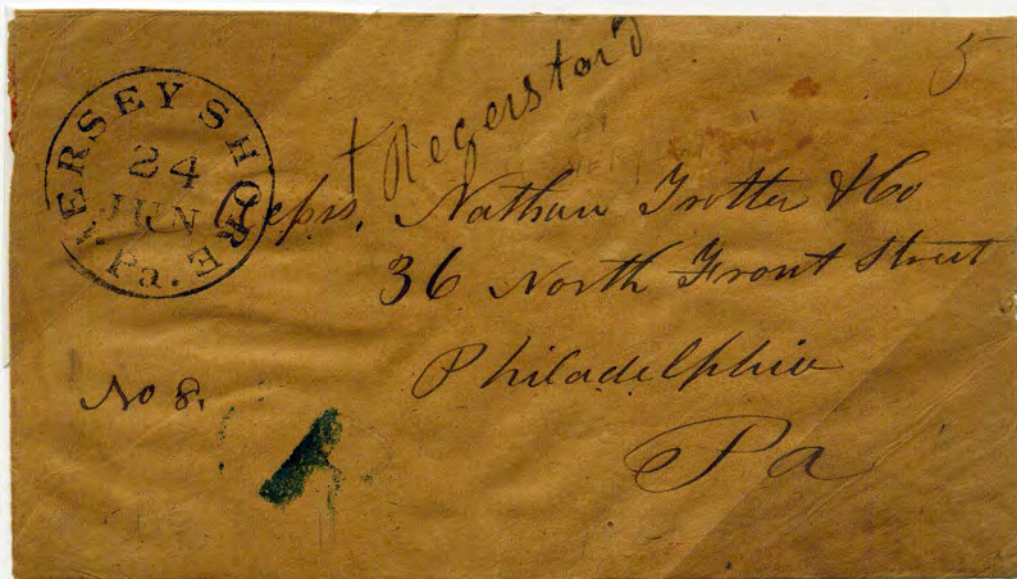 JERSEY SHORE
24
JUN
Pa.
+ Regerstord
5
Messrs. Nathan Trotter & Co
36 North Front Street
Philadelphia
Pa
No 8.